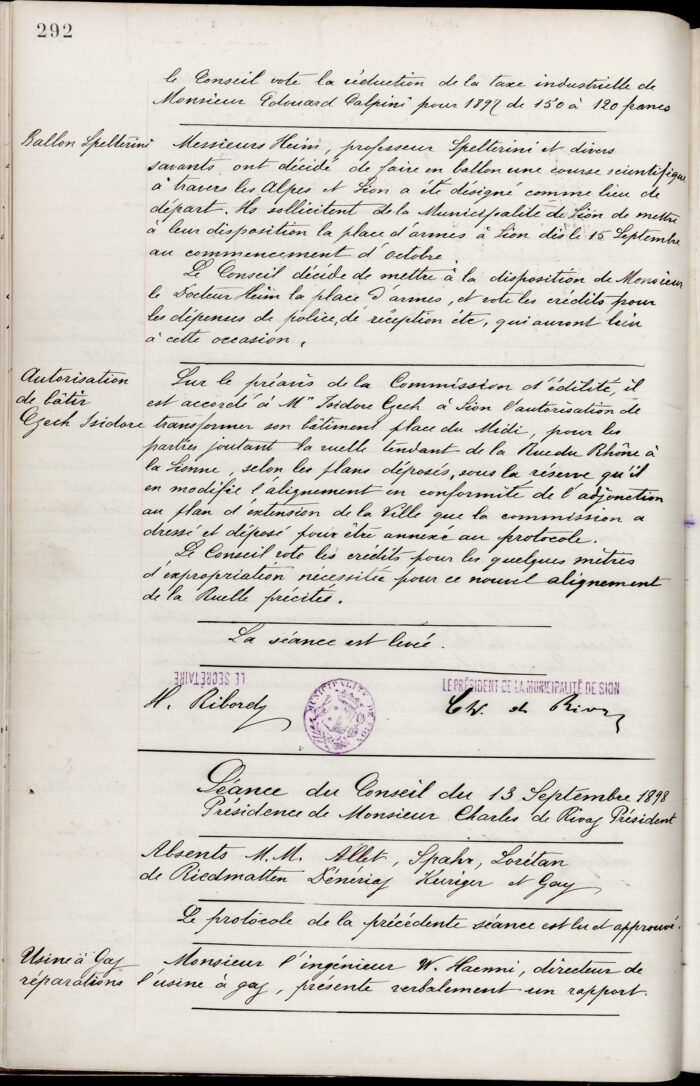 292
le Conseil vote la réduction de la taxe industrielle de
Monsieur Edouard Calpini pour 1897 de 150 à 120 francs
Ballon Spelterini
Messieurs Heim, professeur Spelterini et divers
savants ont décidé de faire en ballon une course scientifique
à travers les Alpes et Sion a été désigné comme lieu de
départ. Ils sollicitent de la Municipalité de Sion de mettre
à leur disposition la place d'armes à Sion dès le 15 Septembre
au commencement d'octobre.
Le Conseil décide de mettre à la disposition de Monsieur
le Docteur Heim la place d'armes, et vote les crédits pour
les dépenses de police, de réception etc, qui auront lieu
à cette occasion.
Autorisation
de bâtir
Czech Isidore
Sur le préavis de la Commission d'édilité, il
est accordé à Mr Isidore Czech à Sion l'autorisation de
transformer son bâtiment, place du Midi, pour les
parties joutant la ruelle tendant de la Rue du Rhône à
la Sionne, selon les plans déposés, sous la réserve qu'il
en modifie l'alignement en conformité de l'adjonction
au plan d'extension de la Ville que la commission a
dressé et déposé pour être annexé au protocole.
Le Conseil vote les crédits pour les quelques mètres
d'expropriation nécessitée pour ce nouvel alignement
de la Ruelle précitée.
La séance est levée.
LE SECRÉTAIRE
LE PRÉSIDENT DE LA MUNICIPALITÉ DE SION
H. Ribordy
MUNICIPALITÉ DE SION
Ch. de Rivaz
Séance du Conseil du 13 Septembre 1898
Présidence de Monsieur Charles de Rivaz Président
Absents M.M. Allet, Spahr, Lorétan
de Riedmatten Dénériaz Kuriger et Gay
Le protocole de la précédente séance est lu et approuvé.
Usine à Gaz
réparations
Monsieur l'ingénieur W. Haenni, directeur de
l'usine à gaz, présente verbalement un rapport.